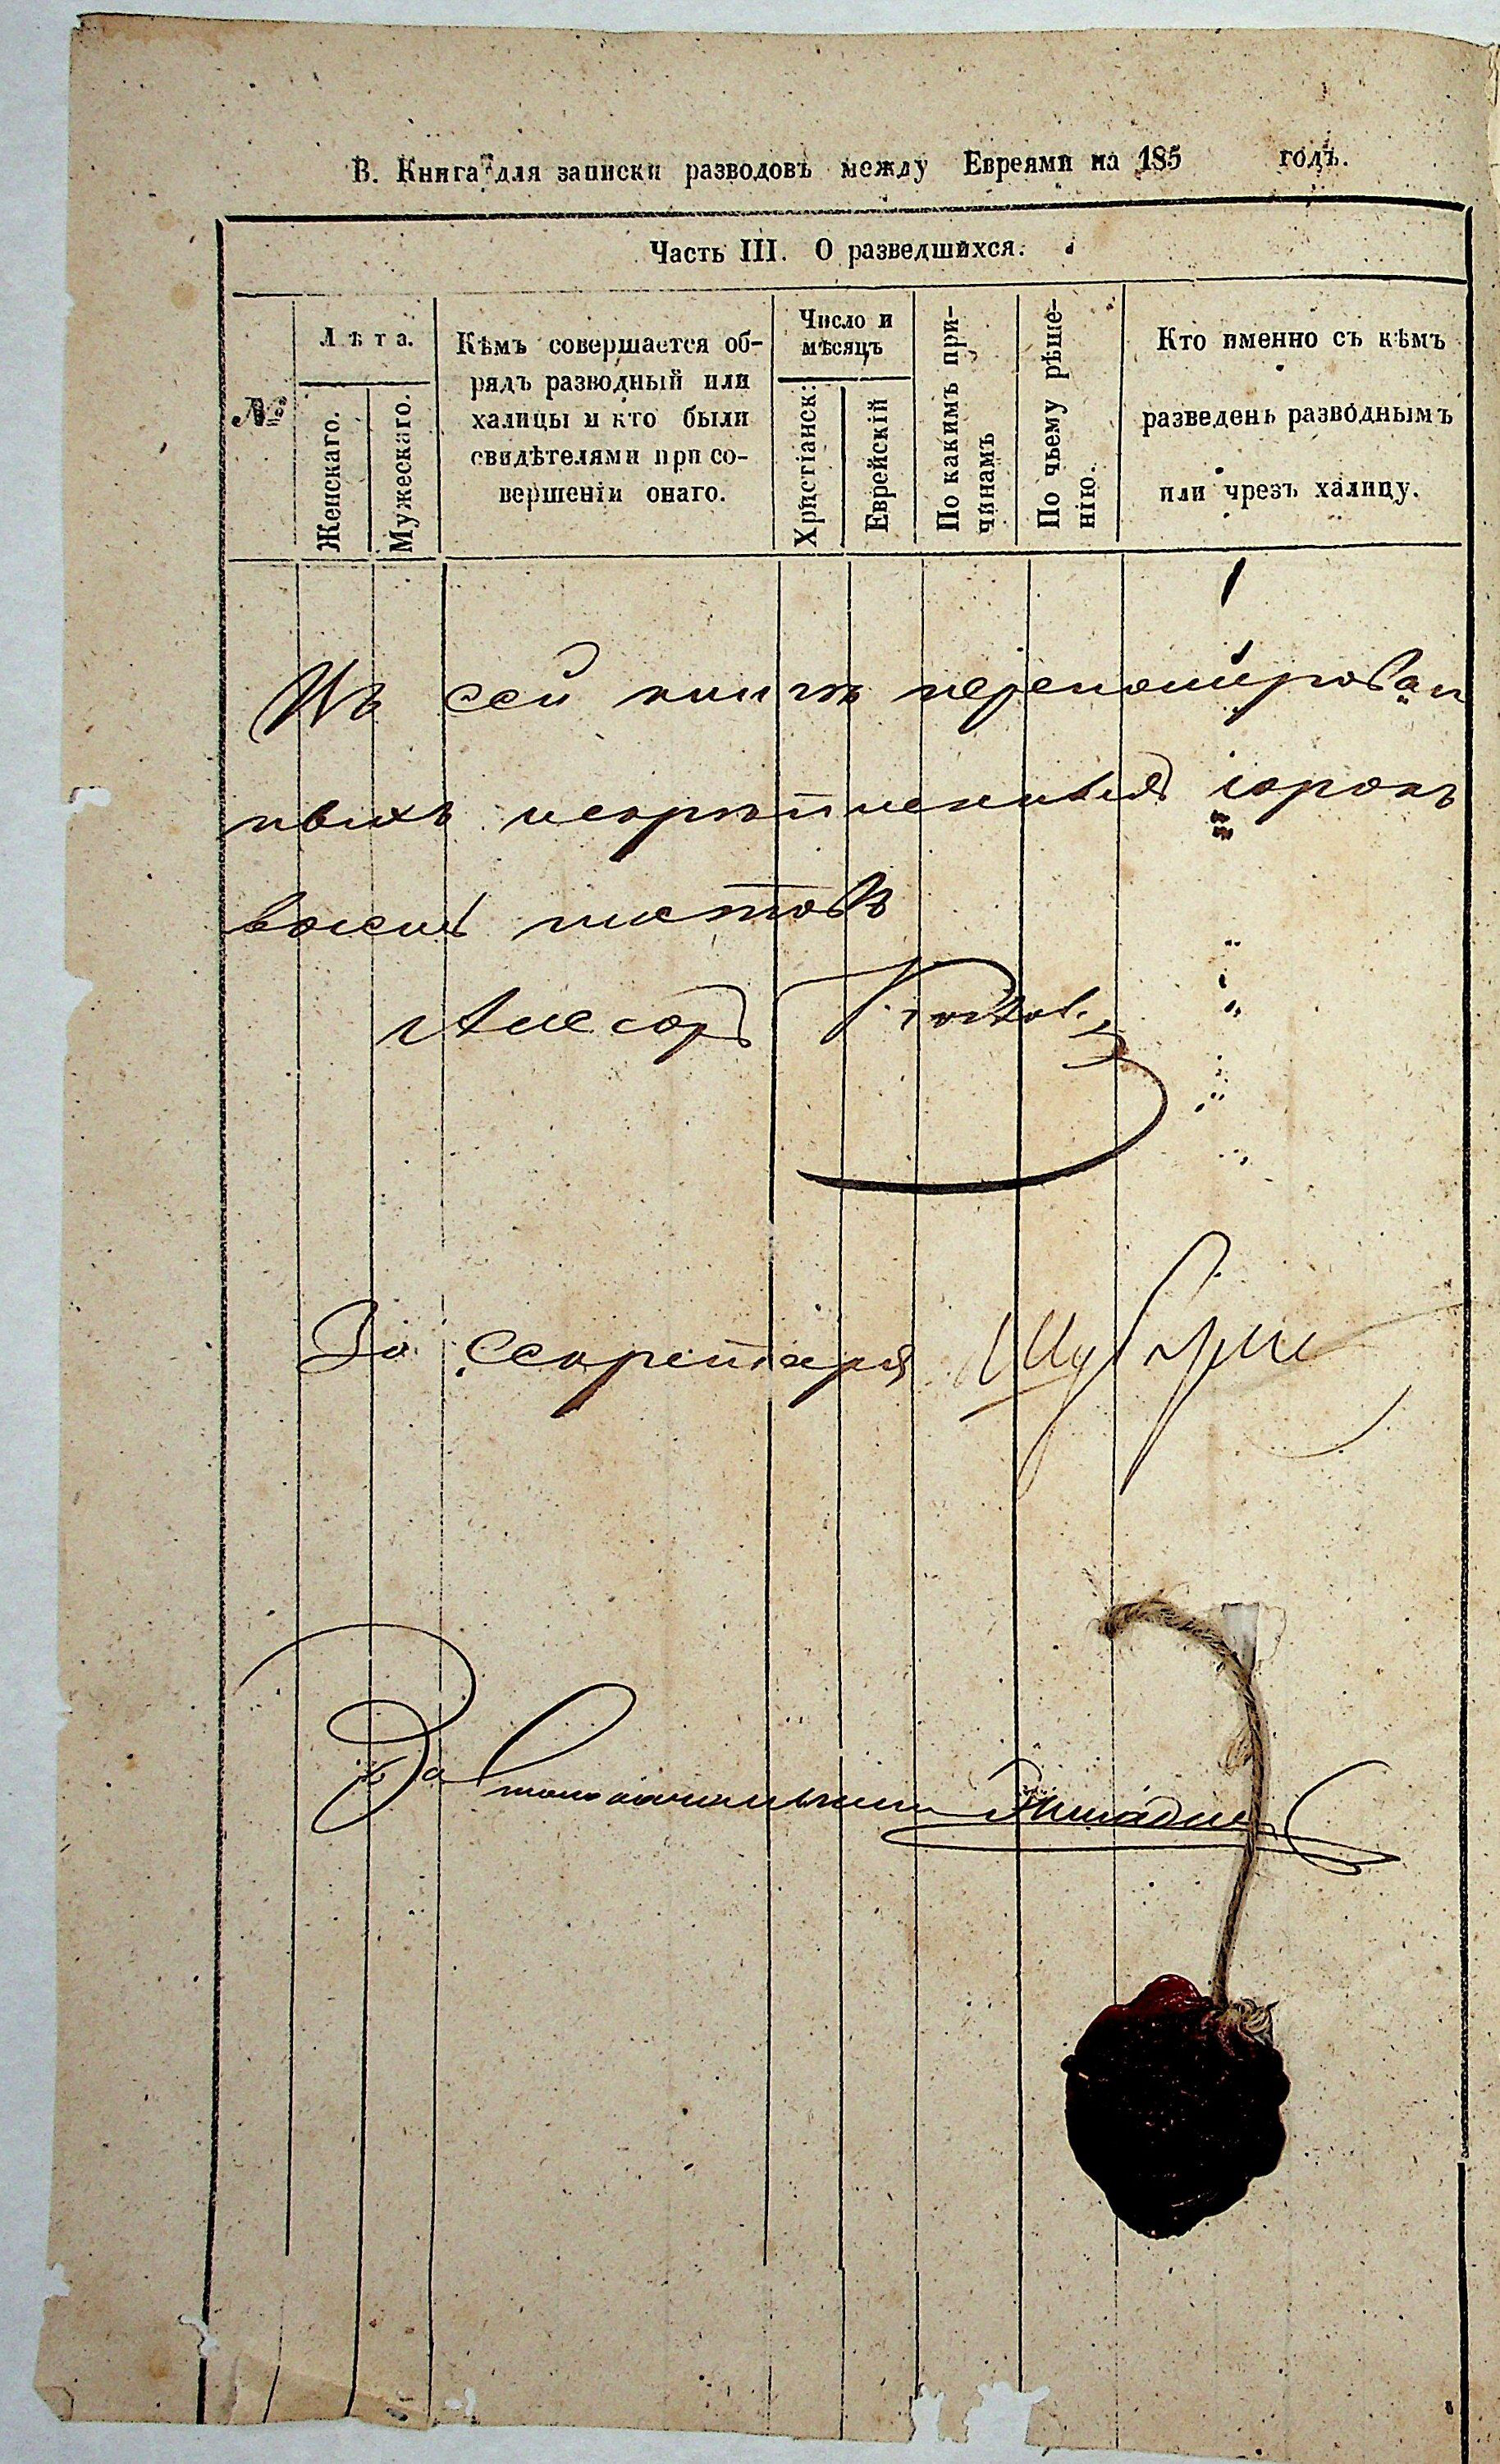 В. Книга для записки разводовъ между Евреями на 185 годъ.
Часть III. О разведшихся.
№
Лѣта.
Женскаго.
Мужескаго.
Кѣмъ совершается об-
рядъ разводный или
халицы и кто были
свидѣтелями при со-
вершеніи онаго.
Число и
мѣсяцъ
Христіанск:
Еврейскій
По какимъ при-
чинамъ
По чьему рѣше-
нію.
Кто именно съ кѣмъ
разведенъ разводнымъ
или чрезъ халицу.
1
Въ сей книгѣ перенумерован
ныхъ и скрѣпленныхъ сорокъ
восемь листовъ
Ассесоръ
За Секретаря
За столоначальника